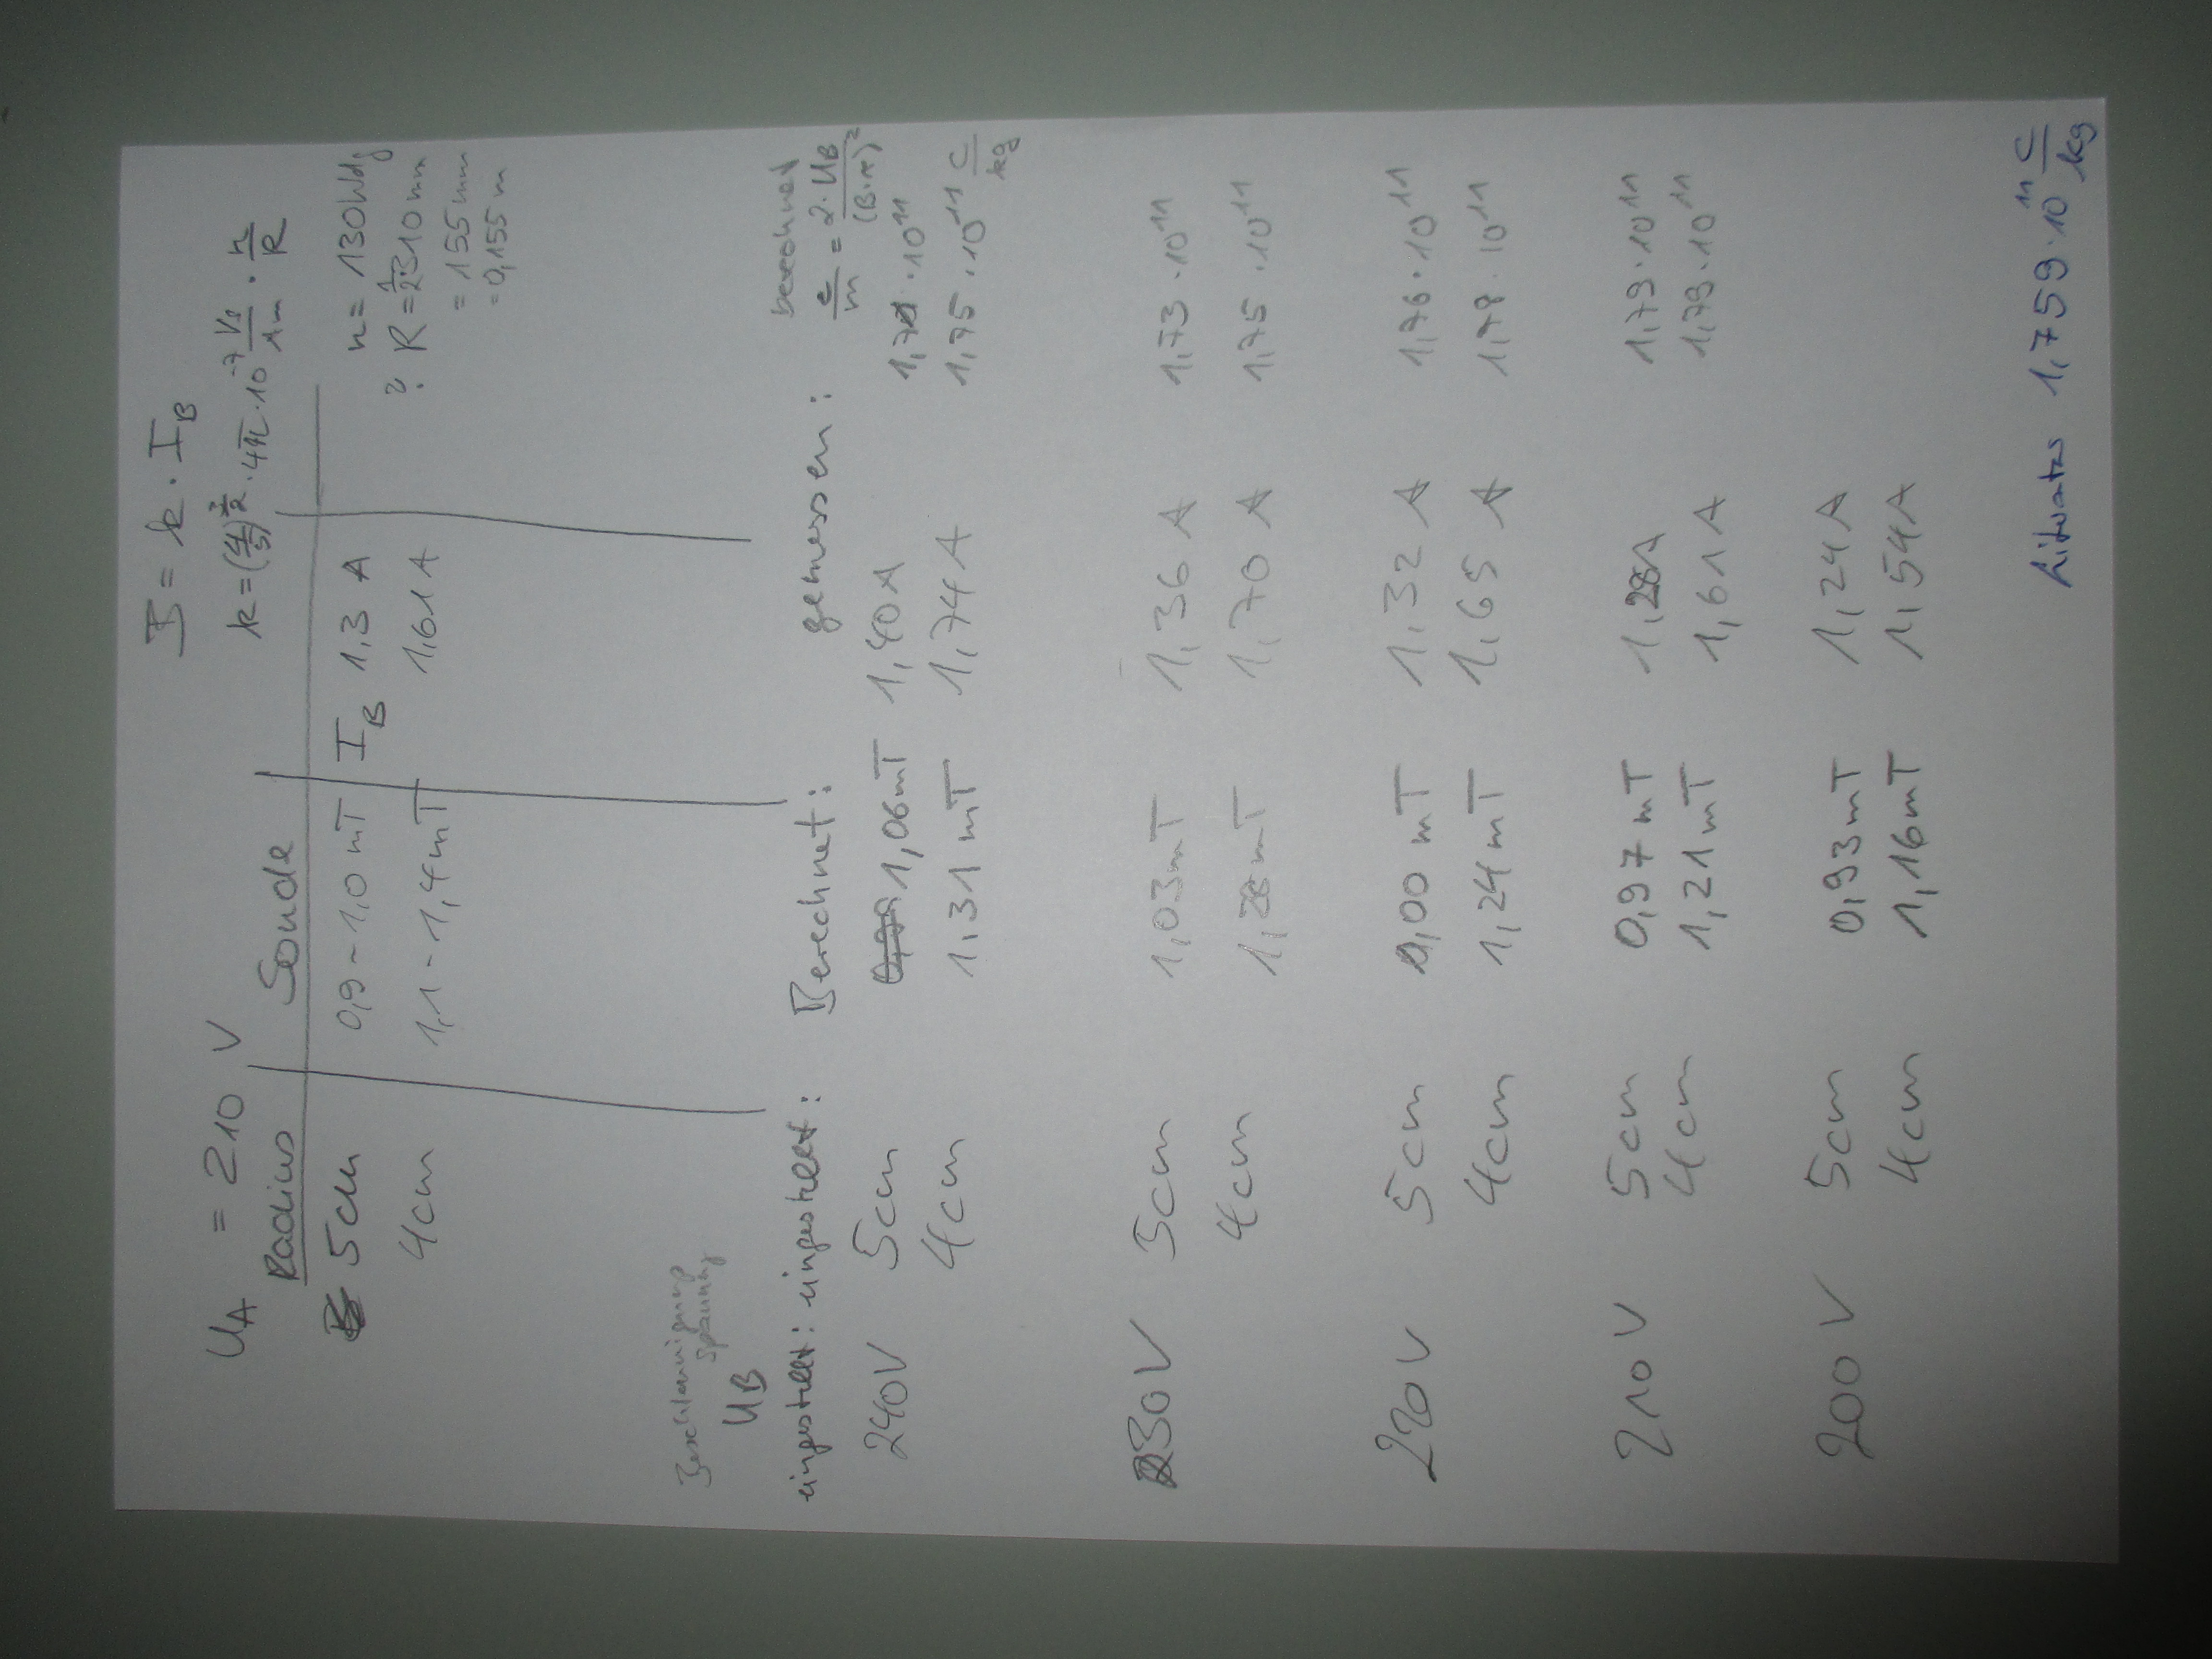 B = k · I_B
U_A = 210 V
k = (4/5)^(3/2) · 4π · 10^-7 Vs/Am · n/R
Radius Sonde
5cm 0,9 - 1,0 mT I_B 1,3 A n = 130 Wdg
4cm 1,1 - 1,4 mT 1,61 A ? R = 1/2 310 mm
= 155 mm
= 0,155 m
Beschleunigungs
spannung
U_B berechnet
eingestellt: eingestellt: Berechnet: gemessen: e/m = 2 · U_B/(B·r)²
240V 5cm 1,06mT 1,40A 1,71 · 10^11
4cm 1,31 mT 1,74 A 1,75 · 10^11 C/kg
230V 5cm 1,03mT 1,36 A 1,73 · 10^11
4cm 1,28mT 1,70 A 1,75 · 10^11
220V 5cm 1,00 mT 1,32 A 1,76 · 10^11
4cm 1,24mT 1,65 A 1,78 · 10^11
210V 5cm 0,97 mT 1,28A 1,79 · 10^11
4cm 1,21mT 1,61 A 1,79 · 10^11
200V 5cm 0,93mT 1,24A
4cm 1,16mT 1,54A
Literatur 1,759 · 10^11 C/kg